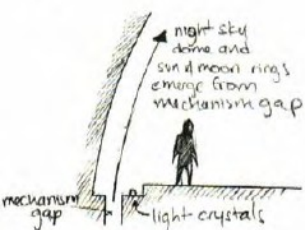 night sky
dome and
sun & moon rings
emerge from
mechanism gap
mechanism
gap
light crystals